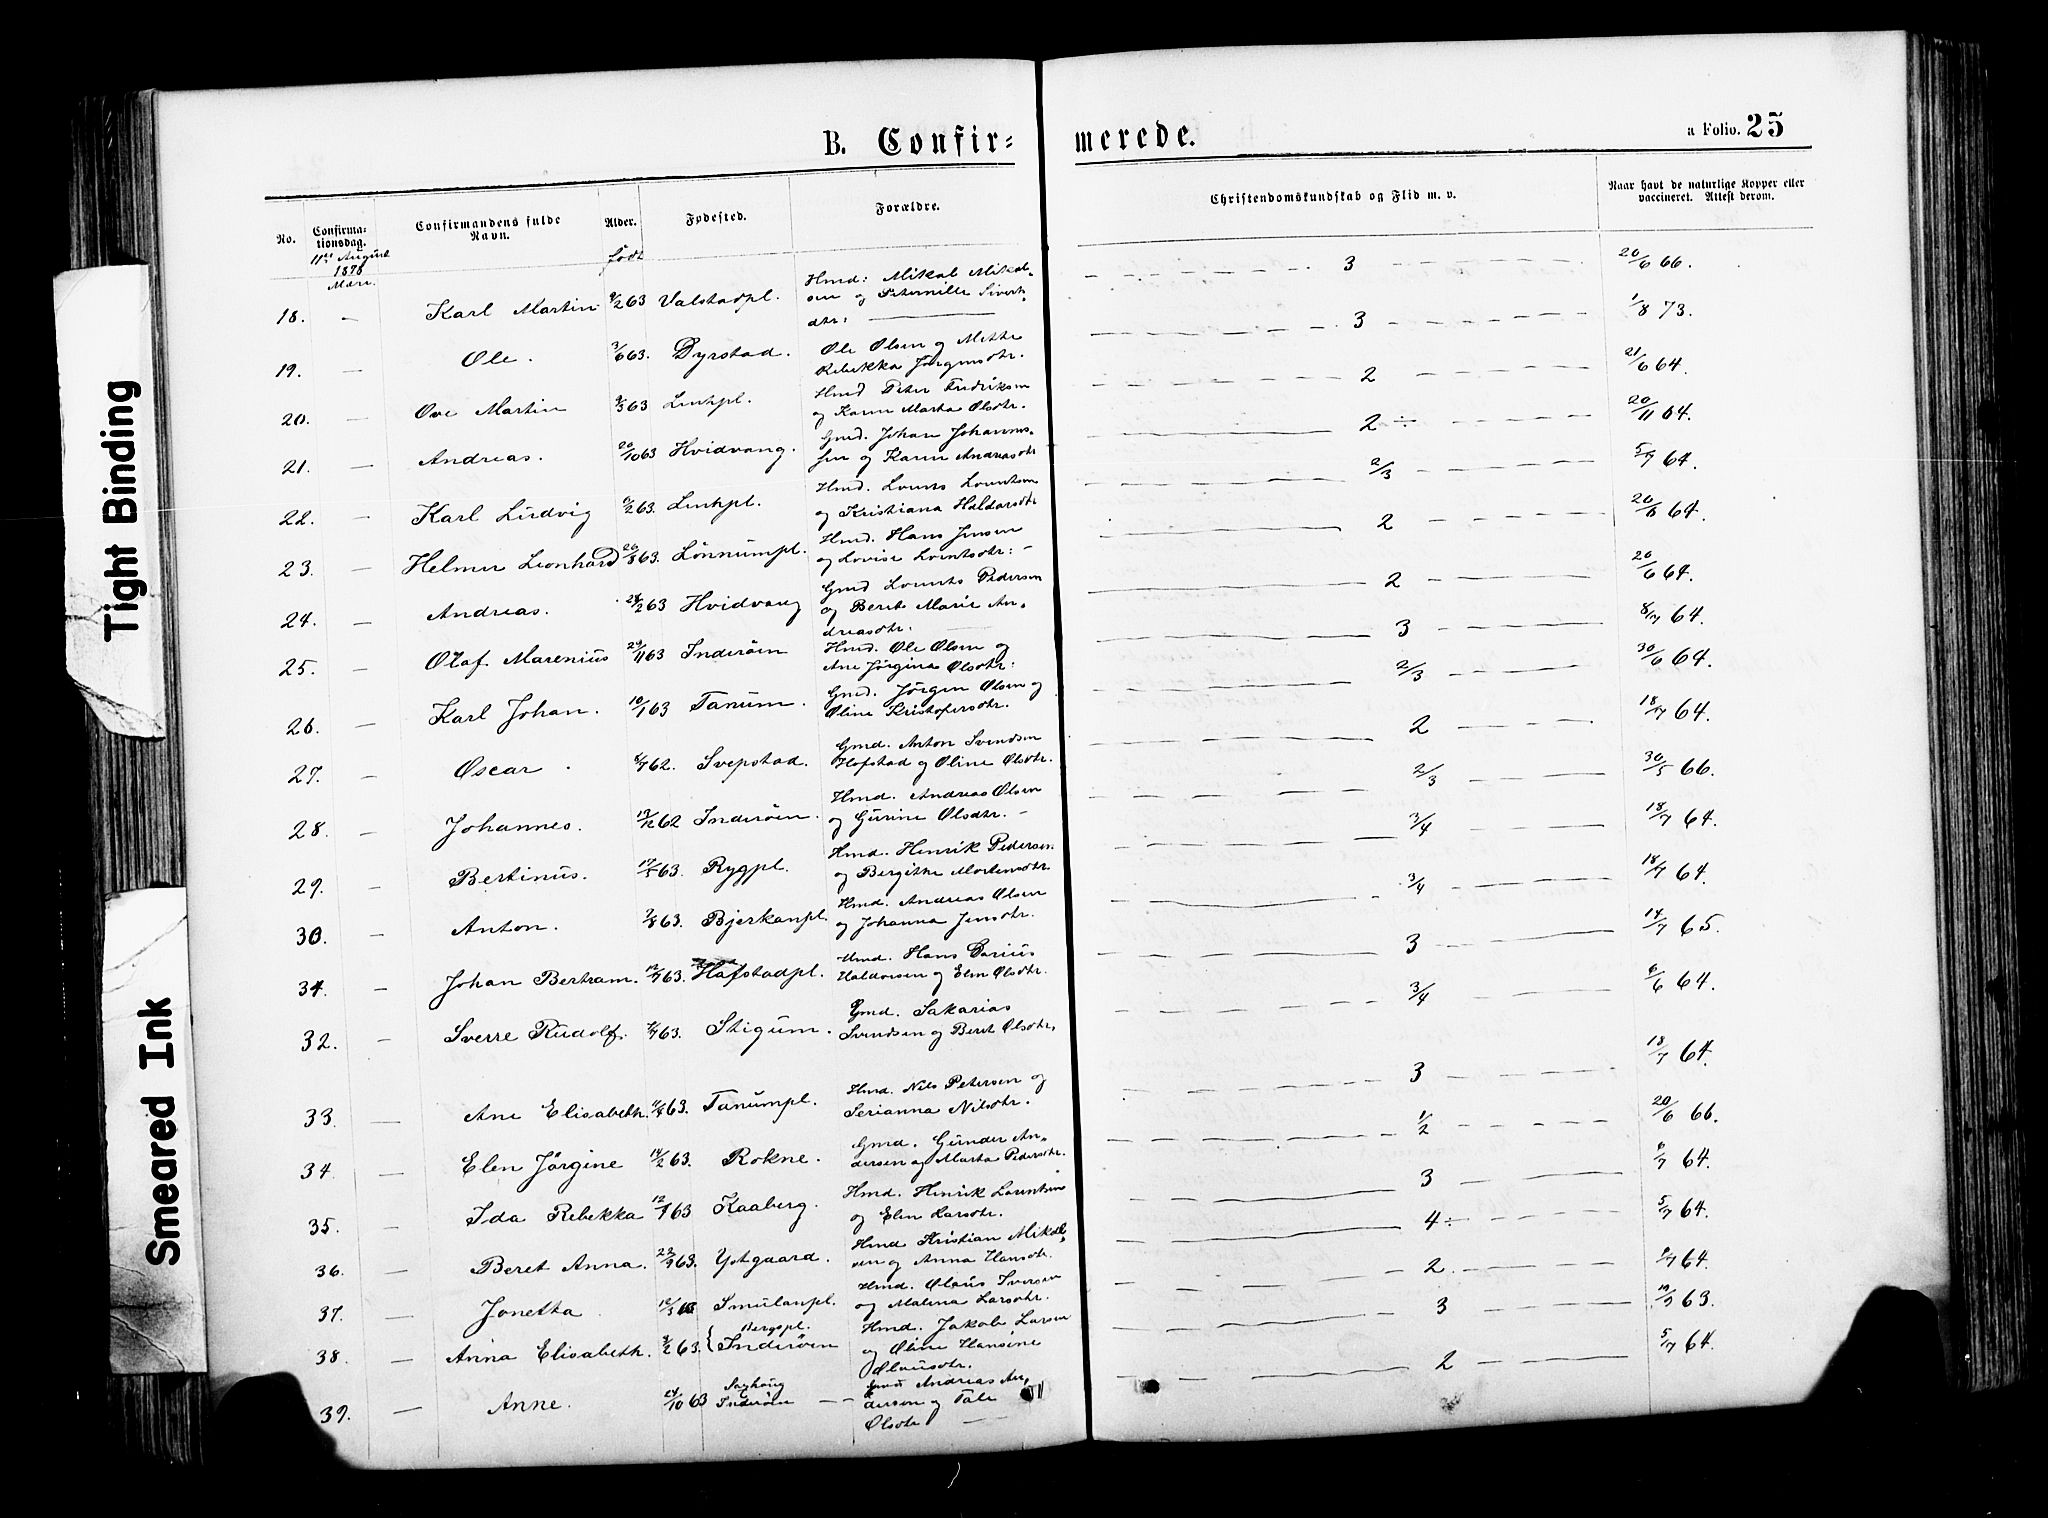 Tight Binding
Smeared Ink
B. Confir-
merede.
a Folio. 25
No.
Confirmationsdag.
Confirmandens fulde Navn.
Alder.
Fødested.
Forældre.
Christendomskundskab og Flid m. v.
Naar havt de naturlige Kopper eller
vaccineret. Attest derom.
11te August
1878
født
18. — Karl Martin 63 Valstadpl. Hmd: Mikal Mikal-
sen og Peternille Siverts-
dtr: 3 20/6 66.
19. — Ole. 3/6 63. Dyrstad. Ole Olsen og Mette
Rebekka Jørgensdtr. 3 1/8 73.
20. — Ove Martin 63 Lenhpl. Hmd Peter Fredriksen
og Karen Marta Olsdtr. 2 21/6 64.
21. — Andreas. 20/10 63 Hvidvang. Gmd. Johan Johannes-
sen og Karen Andreasdtr 2 ÷ 20/11 64.
22. — Karl Ludvig 63. Lenhpl. Hmd. Lorents Lorentsen
og Kristiana Haldorsdtr 2/3 5/7 64.
23. — Helmer Leonhard 20/8 63. Lønnumpl. Hmd. Hans Jensen
og Lovise Lorntsdtr: — 2 20/8 64.
24. — Andreas. 24/2 63 Hvidvang Gmd Lorents Pedersen
og Beret Marie An-
dreasdtr. 2 20/6 64.
25. — Olaf Marenius 24/11 63 Inderøen Hmd. Ole Olsen og
Ane Jørgina Olsdtr: 3 8/7 64.
26. — Karl Johan. 10/1 63 Tanum. Gmd. Jørgen Olsen og
Oline Kristofersdtr. 2/3 30/6 64.
27. — Oscar. 62. Svepstad. Gmd. Anton Svendsen
Hofstad og Oline Olsdtr. 2 18/7 64.
28. — Johannes. 13/12 62 Inderøen. Hmd. Andreas Olsen
og Gurine Olsdtr. — 2/3 30/5 66.
29. — Bertinus. 63. Rygpl. Hmd. Henrik Pedersen
og Bergithe Mortensdtr. 3/4 18/7 64.
30. — Anton. 63. Bjerkanpl. Hmd. Andreas Olsen
og Johanna Jensdtr. 3/4 18/7 64.
31. — Johan Bertram. 63. Hofstadpl. Hmd. Hans Darius
Haldorsen og Elen Olsdtr. 3 14/7 65.
32. — Sverre Rudolf. 63. Stigum. Gmd. Sakarias
Svendsen og Beret Olsdtr. 3/4 6/6 64.
33. — Ane Elisabeth. 63. Tanumpl. Hmd. Nils Petersen og
Serianna Nilsdtr. 3 18/7 64.
34. — Elen Jørgine 14/2 63. Rokne. Gmd. Gunder An-
dersen og Marta Pedersdtr. 1/2 20/6 66.
35. — Ida Rebekka 63 Kaaberg. Hmd. Henrik Larentsen
og Elen Larsdtr. 3 64.
36. — Beret Anna. 63. Ystgaard. Hmd Kristian Mikal-
sen og Anna Hansdtr. 4 ÷ 5/7 64.
37. — Jonetta. Smulanpl. Hmd. Olaus Iversen
og Malena Larsdtr. 2. 64.
38. — Anna Elisabeth. 63. Bergspl.
Inderøen Hmd. Jakob Larsen
og Oline Hansine
Olausdtr. 3 63.
39. — Anne. 24/10 63 Saxhaug
Inderøen — Gmd Andreas An-
dersen og Tale
Olsdtr 2 5/7 64.